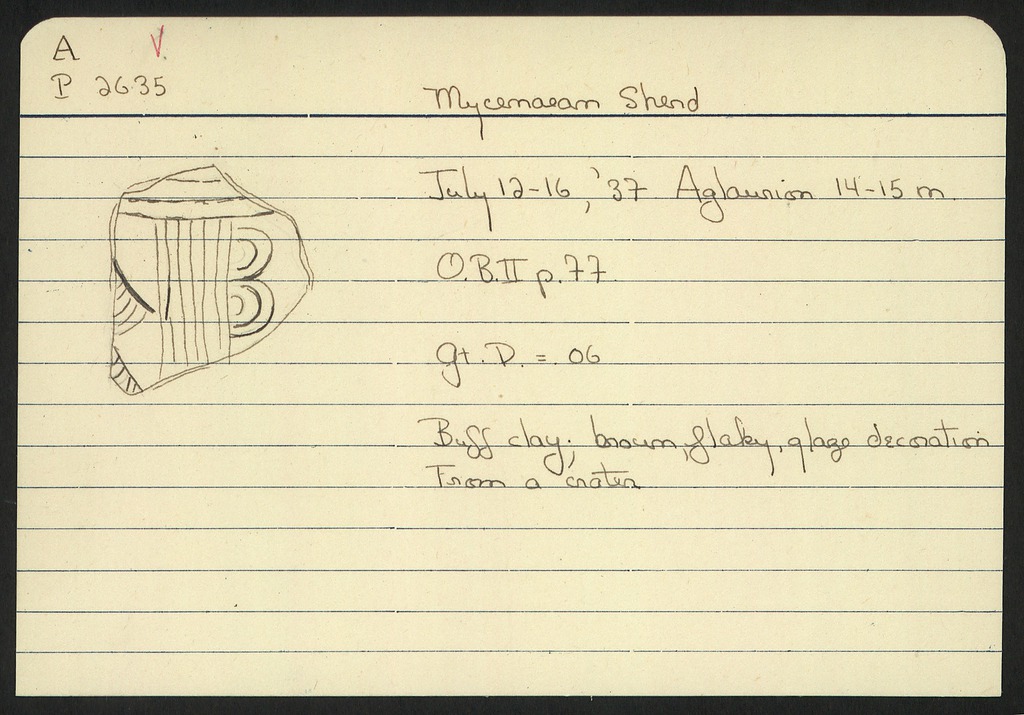 A V
P 2635
Mycenaean Sherd
July 12-16, '37 Aglaurion 14-15 m.
O.B.II p.77.
gt. D. = .06
Buff clay; brown, flaky, glaze decoration
From a crater